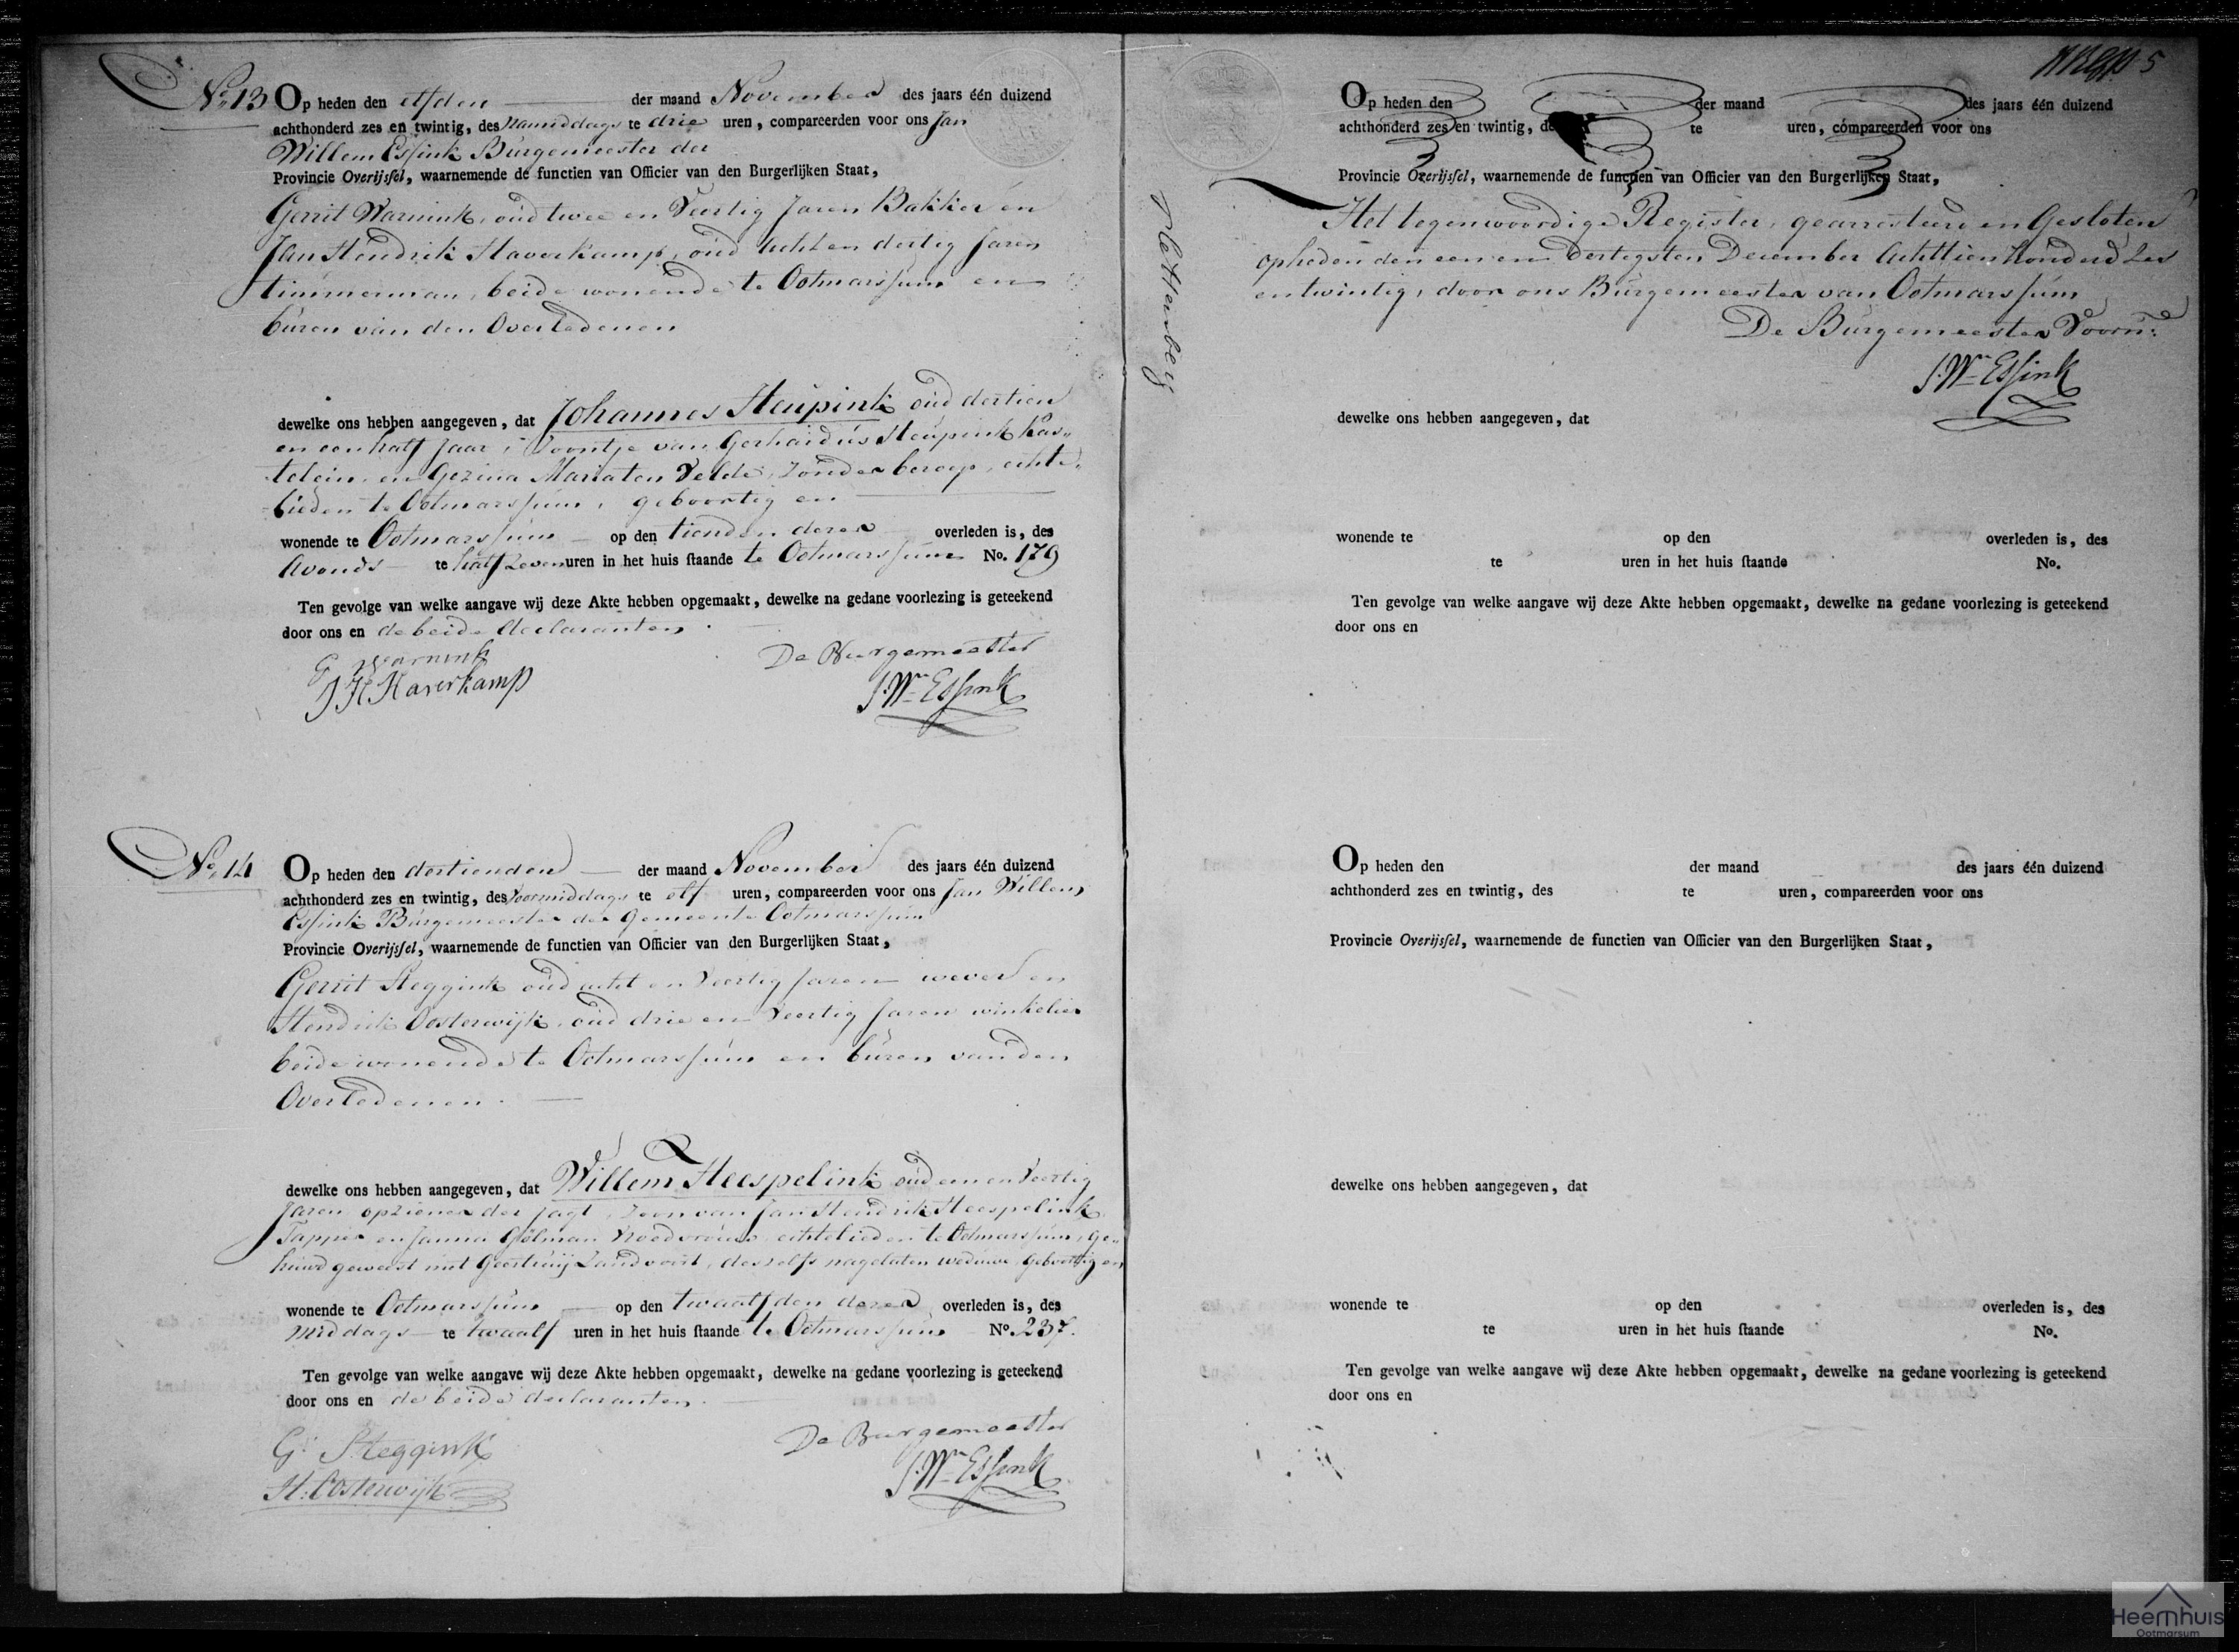 No. 13 Op heden den elfden der maand November des jaars één duizend
achthonderd zes en twintig, des Namiddags te drie uren, compareerden voor ons Jan
Willem Essink Burgemeester der
Provincie Overijssel, waarnemende de functien van Officier van den Burgerlijken Staat,
Gerrit Warnink, oud twee en Veertig Jaren Bakker en
Jan Hendrik Haverkamp, oud Acht en dertig Jaren
timmerman, beide wonende te Ootmarssum en
buren van den Overledenen
dewelke ons hebben aangegeven, dat Johannes Heupink oud dertien
en een half Jaar, Zoontje van Gerhardus Heupink Kas„
telein, en Gezina Maria ten Velde, zonder beroep, echte„
lieden te Ootmarssum, geboortig en
wonende te Ootmarssum op den tienden dezer overleden is, des
Avonds te half zeven uren in het huis staande te Ootmarssum No. 179
Ten gevolge van welke aangave wij deze Akte hebben opgemaakt, dewelke na gedane voorlezing is geteekend
door ons en de beide declaranten.
G Warnink
J H Haverkamp
De Burgemeester
J. Wm Essink
No. 14 Op heden den dertienden der maand November des jaars één duizend
achthonderd zes en twintig, des Voormiddags te elf uren, compareerden voor ons Jan Willem
Essink Burgemeester der Gemeente Ootmarssum
Provincie Overijssel, waarnemende de functien van Officier van den Burgerlijken Staat,
Gerrit Steggink oud acht en Veertig Jaren wever en
Hendrik Oosterwijk, oud drie en Veertig Jaren winkelier
beide wonende te Ootmarssum en buren van den
Overledenen.
dewelke ons hebben aangegeven, dat Willem Heespelink oud een en Veertig
Jaren opziener der jagt, Zoon van Jan Hendrik Heespelink
Tapper en Janna Gelman Vroedvrouw echtelieden te Ootmarssum, ge„
huwd geweest met Geertruij Zandvoort, deszelfs nagelaten weduwe, geboortig en
wonende te Ootmarssum op den twaalfden dezer overleden is, des
Middags te twaalf uren in het huis staande te Ootmarssum No. 237.
Ten gevolge van welke aangave wij deze Akte hebben opgemaakt, dewelke na gedane voorlezing is geteekend
door ons en de beide declaranten.
G. Steggink
H. Oosterwijk
De Burgemeester
J. Wm Essink
5
Plettenberg
Op heden den der maand des jaars één duizend
achthonderd zes en twintig, de te uren, compareerden voor ons
Provincie Overijssel, waarnemende de functien van Officier van den Burgerlijken Staat,
Het tegenwoordige Register, gearresteerd en Gesloten
op heden den een en dertigsten December Achttien honderd Zes
en twintig, door ons Burgemeester van Ootmarssum
De Burgemeester Voorn:
J. Wm Essink
dewelke ons hebben aangegeven, dat
wonende te op den overleden is, des
te uren in het huis staande No.
Ten gevolge van welke aangave wij deze Akte hebben opgemaakt, dewelke na gedane voorlezing is geteekend
door ons en
Op heden den der maand des jaars één duizend
achthonderd zes en twintig, des te uren, compareerden voor ons
Provincie Overijssel, waarnemende de functien van Officier van den Burgerlijken Staat,
dewelke ons hebben aangegeven, dat
wonende te op den overleden is, des
te uren in het huis staande No.
Ten gevolge van welke aangave wij deze Akte hebben opgemaakt, dewelke na gedane voorlezing is geteekend
door ons en
Heemhuis
Ootmarsum